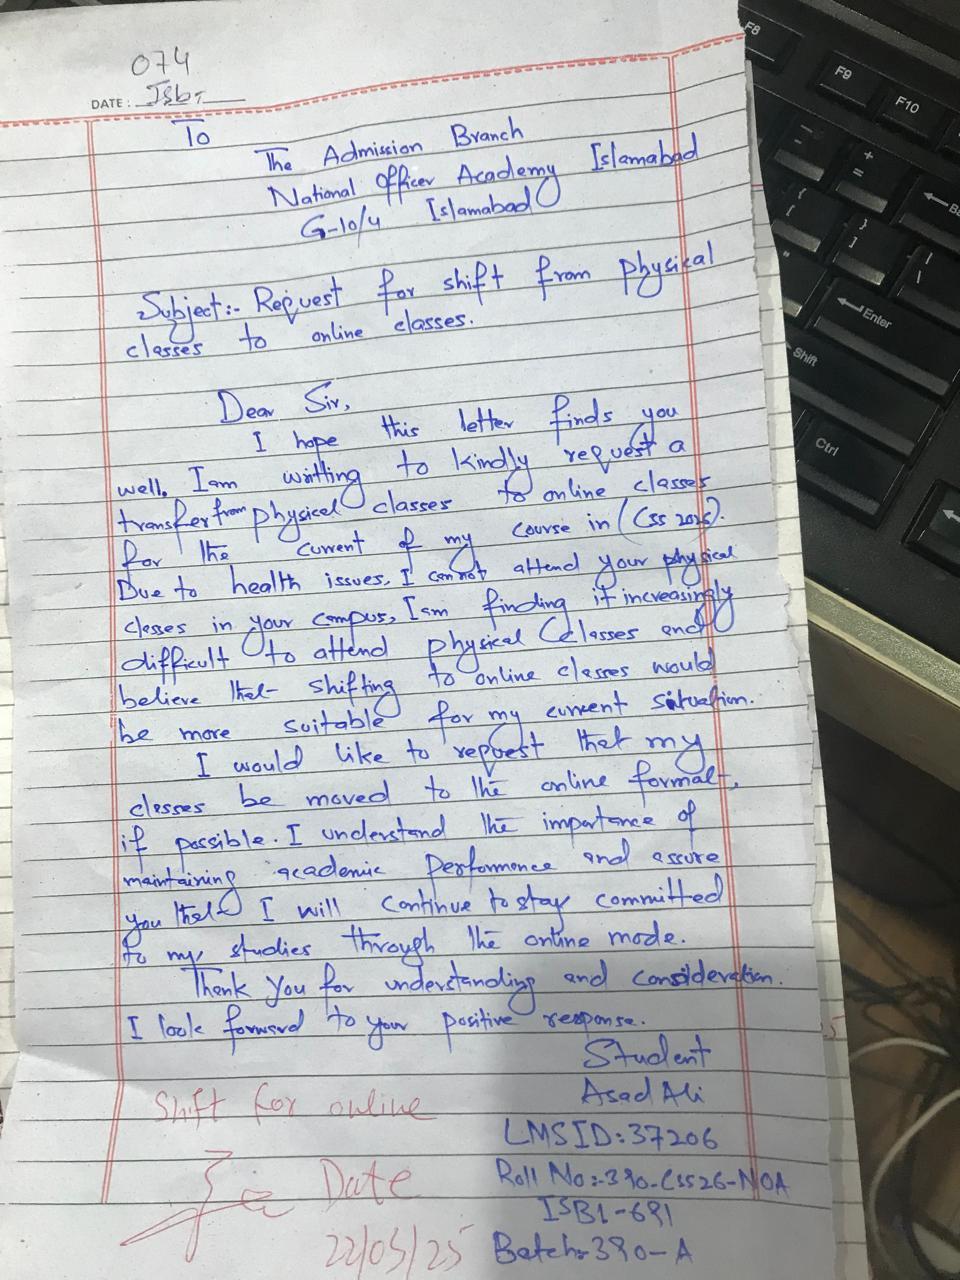 074
DATE: Isb,
To
The Admission Branch
National Officer Academy Islamabad
G-10/4 Islamabad
Subject:- Request for shift from physical
classes to online classes.
Dear Sir,
I hope this letter finds you
well. I am writting to kindly request a
transfer from physical classes to online classes
for the current of my course in (CSS 2025).
Due to health issues, I cannot attend your physical
classes in your campus, I am finding it increasingly
difficult to attend physical Classes and
believe that shifting to online classes would
be more suitable for my current situation.
I would like to request that my
classes be moved to the online format,
if possible. I understand the importance of
maintaining academic performance and assure
you that I will continue to stay committed
to my studies through the online mode.
Thank You for understanding and consideration.
I look forward to your positive response.
Student
Asad Ali
LMS ID: 37206
Roll No:-390-CSS26-NOA
ISB1-691
Batch:-390-A
Shift for online
Date
22/05/25
F8
F9
F10
-
+
=
Ba
{
[
}
]
|
\
"
Enter
Shift
Ctrl